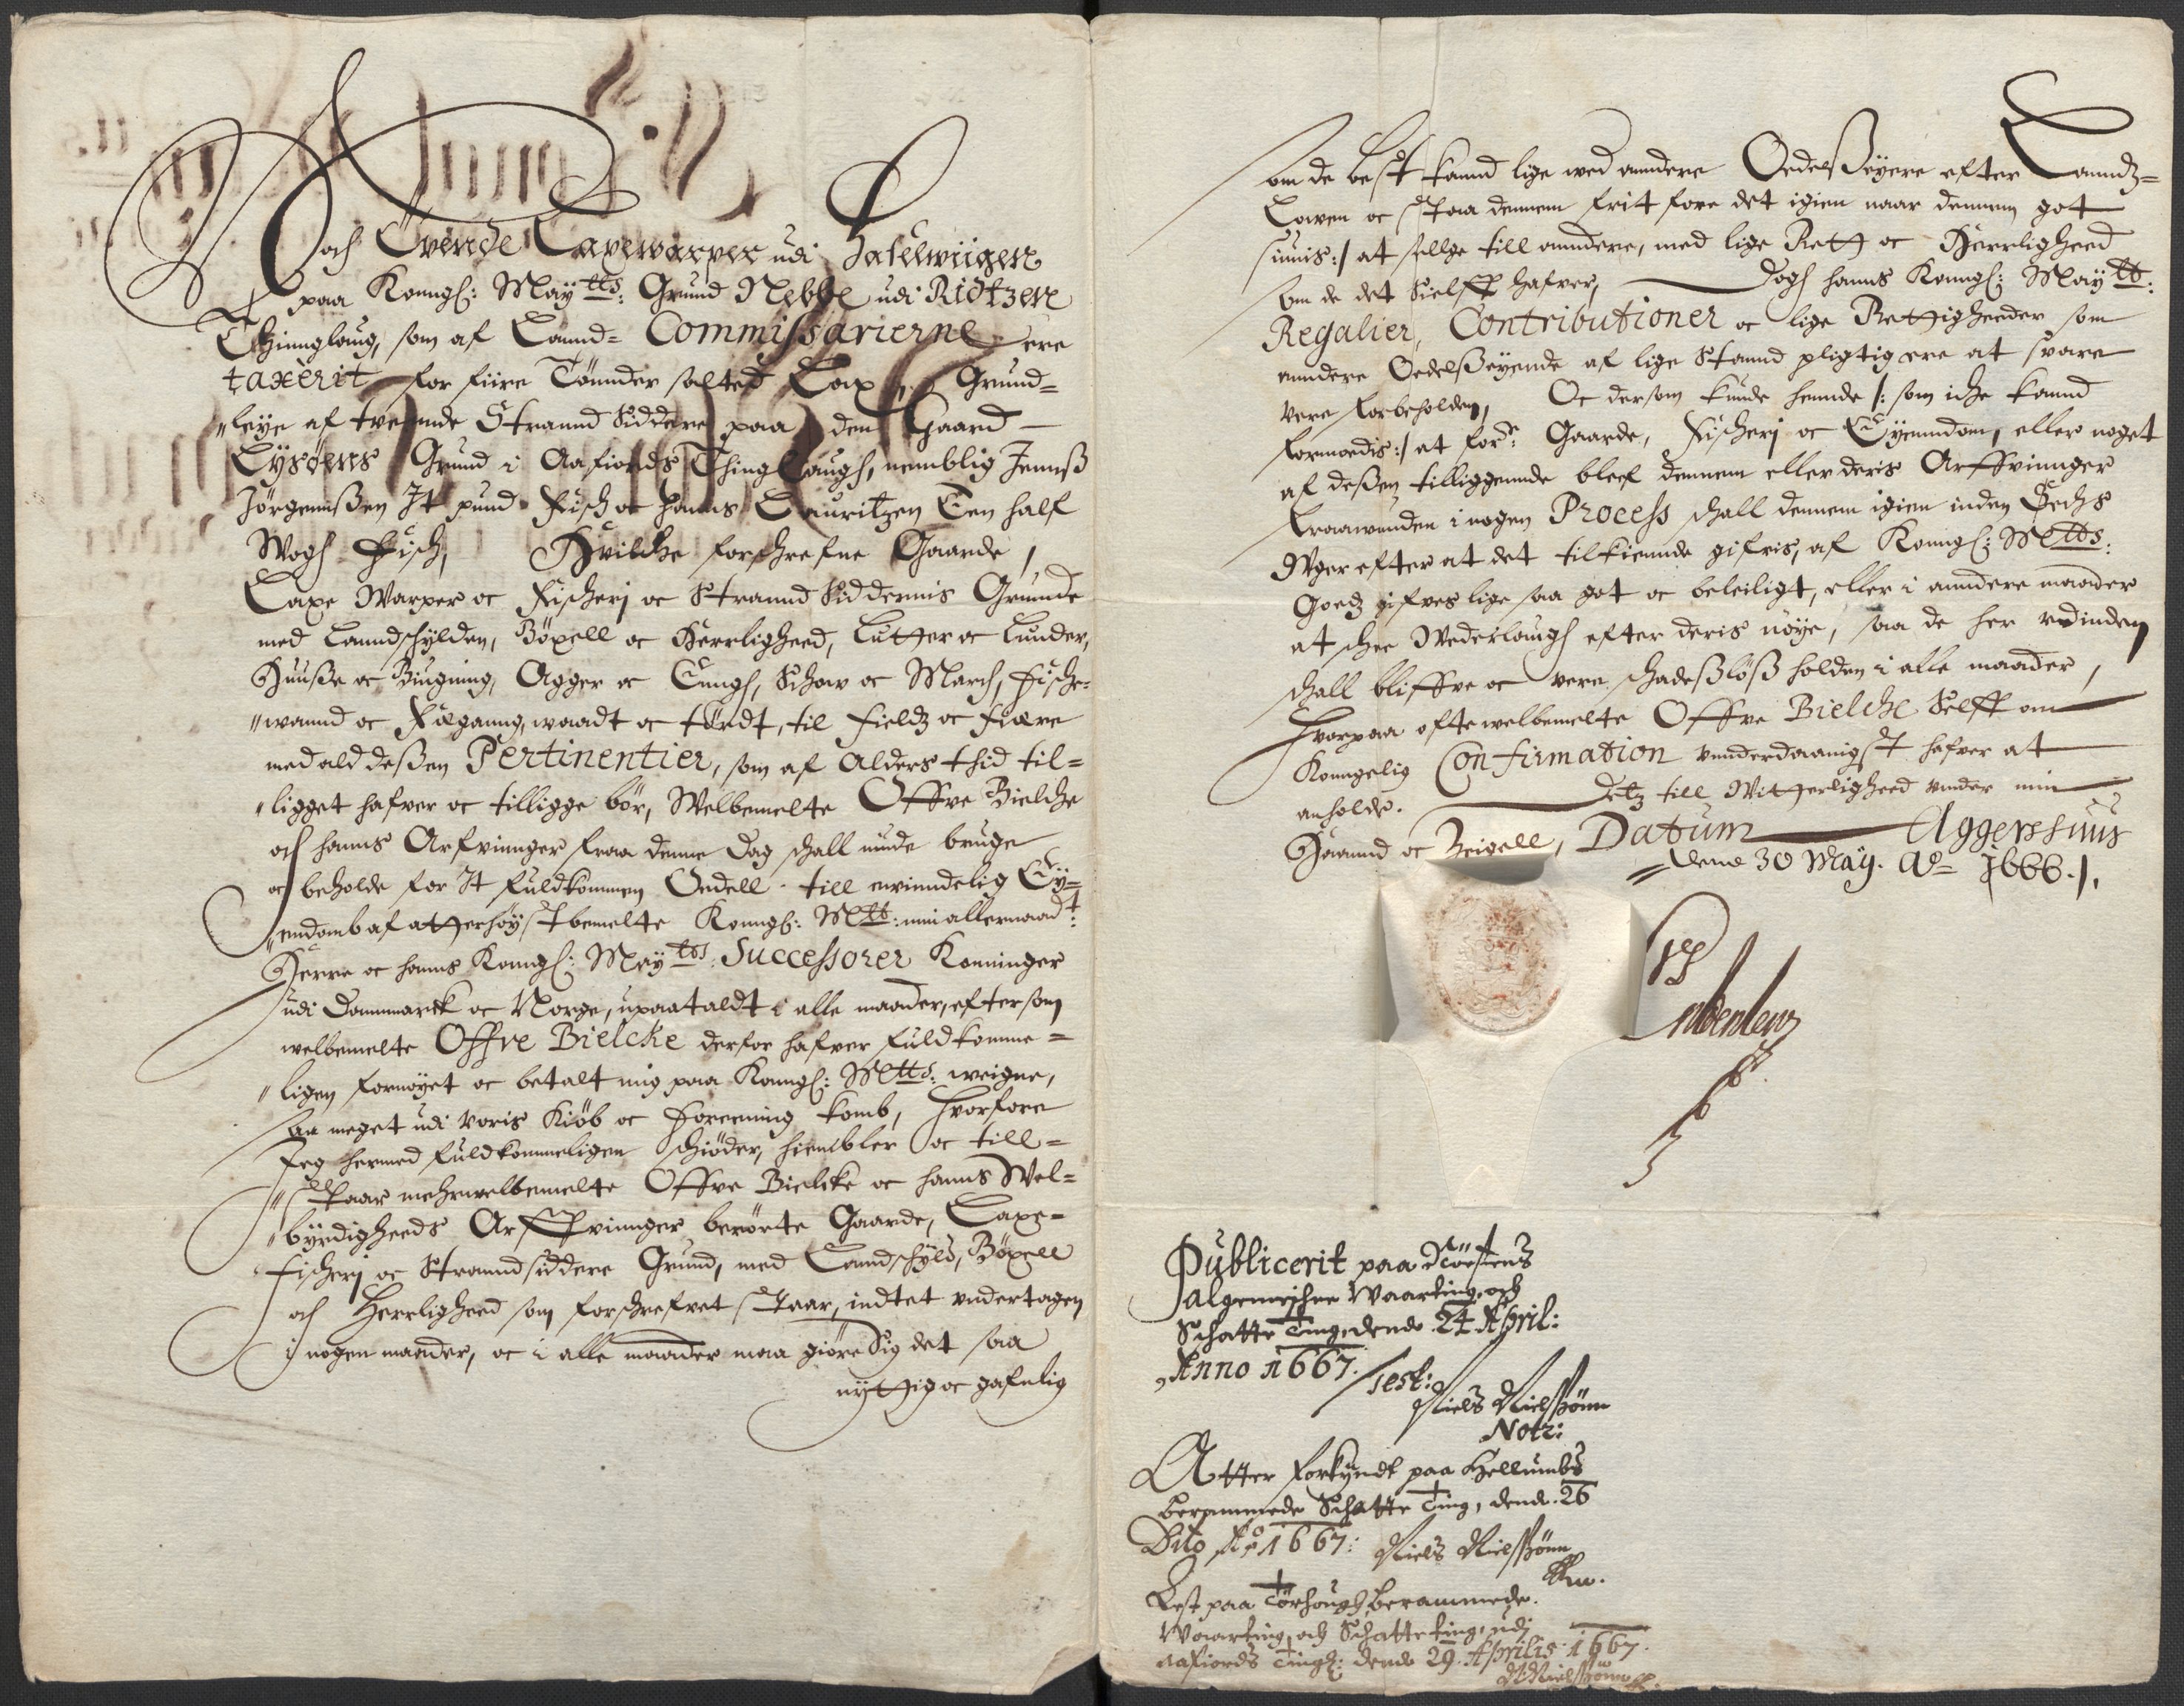 och Tvende Laxewarper udi Hasselwiigen
paa Konngl: Maytts: Grund Nebbe udi Ridtzen
Thinnglaug, som af Lannd= Commissarierne ere
taxerit for fiire Tønnder salted Lax, Grund=
"leye af tvennde Strannd Siddere paa den Gaard
Lysøens Grund i Aafiords Thing Laugh, nemblig Jennß
Jørgennßen It pund Fisch oc Hanns Lauritzen Een half
Wogh Fisch, Hvilche forschrefne Gaarde,
Laxe Warper oc Fischerj oc Strannd Siddernis Grunde
med Lanndschylden, Böxell oc Herrligheed, Lutter oc Lunder,
Huuße oc Biugning, Agger oc Enngh, Schow oc March, Fische=
"wannd oc Fæganng, waadt oc tördt, til Fieldz oc Fiære
med ald deßen Pertinentier, som af Alders thid til=
"ligget hafver oc tilligge bör, Welbemelte Offve Bielche
och hanns Arfvinnger fraa denne Dag schall nüde bruge
oc beholde for It fuldkommen Oedell till ewinndelig Ey=
"enndomb af atterhöystbemelte Konngl: Mtts: min allernaadt:
Herre oc hanns Konngl: Maytts: Successorer Konninger
udi Dannmarck oc Norge, upaataldt i alle maader, eftersom
welbemelte Offve Bielcke derfor hafver fuldkomme=
"ligen fornöyet oc betalt mig paa Konngl: Mtts: weigne,
saa meget udi voris Kiöb oc Foreening komb, Hvorfore
Jeg hermed fuldkommeligen schiöder, hiembler oc till=
"staar mehrwelbemelte Offve Bielcke oc hanns Wel=
"byrdigheeds Arffvinnger berörte Gaarde, Laxe=
Fischerj oc Stranndsiddere Grund, med Lanndschyld, Böxell
och Herrligheed som forschrefvet staar, indtet undertagen
i nogen maader, oc i alle maader maa giöre Sig det saa
nyttig oc gafnlig
som de best kannd lige wed anndere Oedelßeyere efter Lanndz=
Lowen oc staa dennem frit fore det igien naar dennem got
siunis:/ at sellge till anndere, med lige Rett oc Herrligheed
som de det Sielff hafver, Dogh hanns Konngl: Maytts:
Regalier, Contributioner oc lige Rettigheeder som
anndere Oedelßeyende af lige Stannd pligtig ere at svare
vere forbeholden, Oc dersom kunde hennde /: som iche kannd
formoedis:/ at fornte: Gaarde, Fischerj oc Eyenndom, eller noget
af deßen tilliggennde blef dennem eller deris Arffvinnger
fraawunden i nogen Process schall dennem igien inden Sechs
Uger efter at det tilkiennde gifvis, af Konngl: Mtts:
Goedz gifves lige saa got oc beleiligt, eller i anndere maader
at schee Wederlaugh efter deris nöye, saa de her udinden
schall bliffve oc vere schadeßlöß holden i alle maader,
Hvorpaa ofte welbemelte Offve Bielche Selff om
Konngelig Confirmation unnderdaanigst hafver at
anholde. Detz till Witterligheed under min
Haannd oc Zeigell, Datum Aggershuus
denn 30 May. Ao 1666./.
Publicerit paa Störens
algemehne Waarting, och
Schatte Ting, dend 24 April:
Anno 1667.
Test:
Niels Nielßönn
Notr:
Atter forkyndt paa Hellumbs
berammede Schatte Ting, dend. 26
Dito Ao 1667: Niels Nielßönn
Lest paa Törhough berammede
Waarting, och Schatte ting, udj
Aafiords Tingh: dend 29. Aprilis 1667.
N Nielßönn